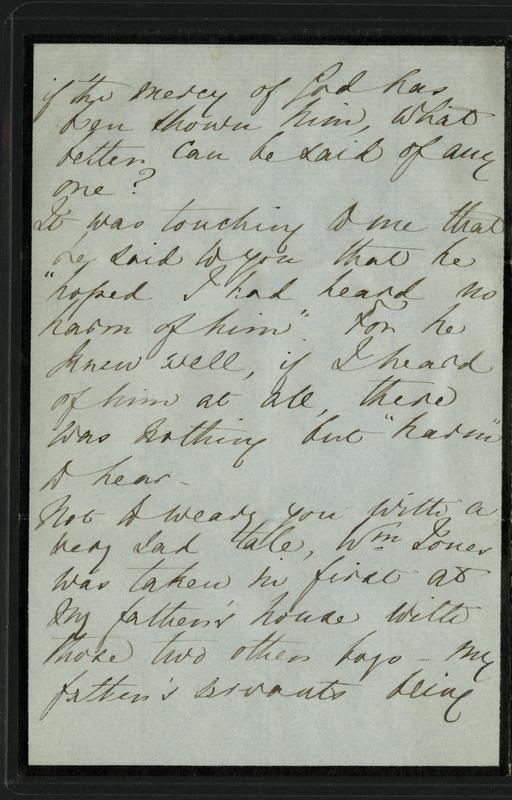 if the mercy of God has
been shown him, what
better can be said of any
one?
It was touching to me that
he said to you that he
"hoped I had heard no
harm of him" For he
knew well, if I heard
of him at all, there
was nothing but "harm"
to hear -
Not to weary you with a
very sad tale, Wm Jones
was taken in first at
my father's house with
those two other boys - my
father's servants being